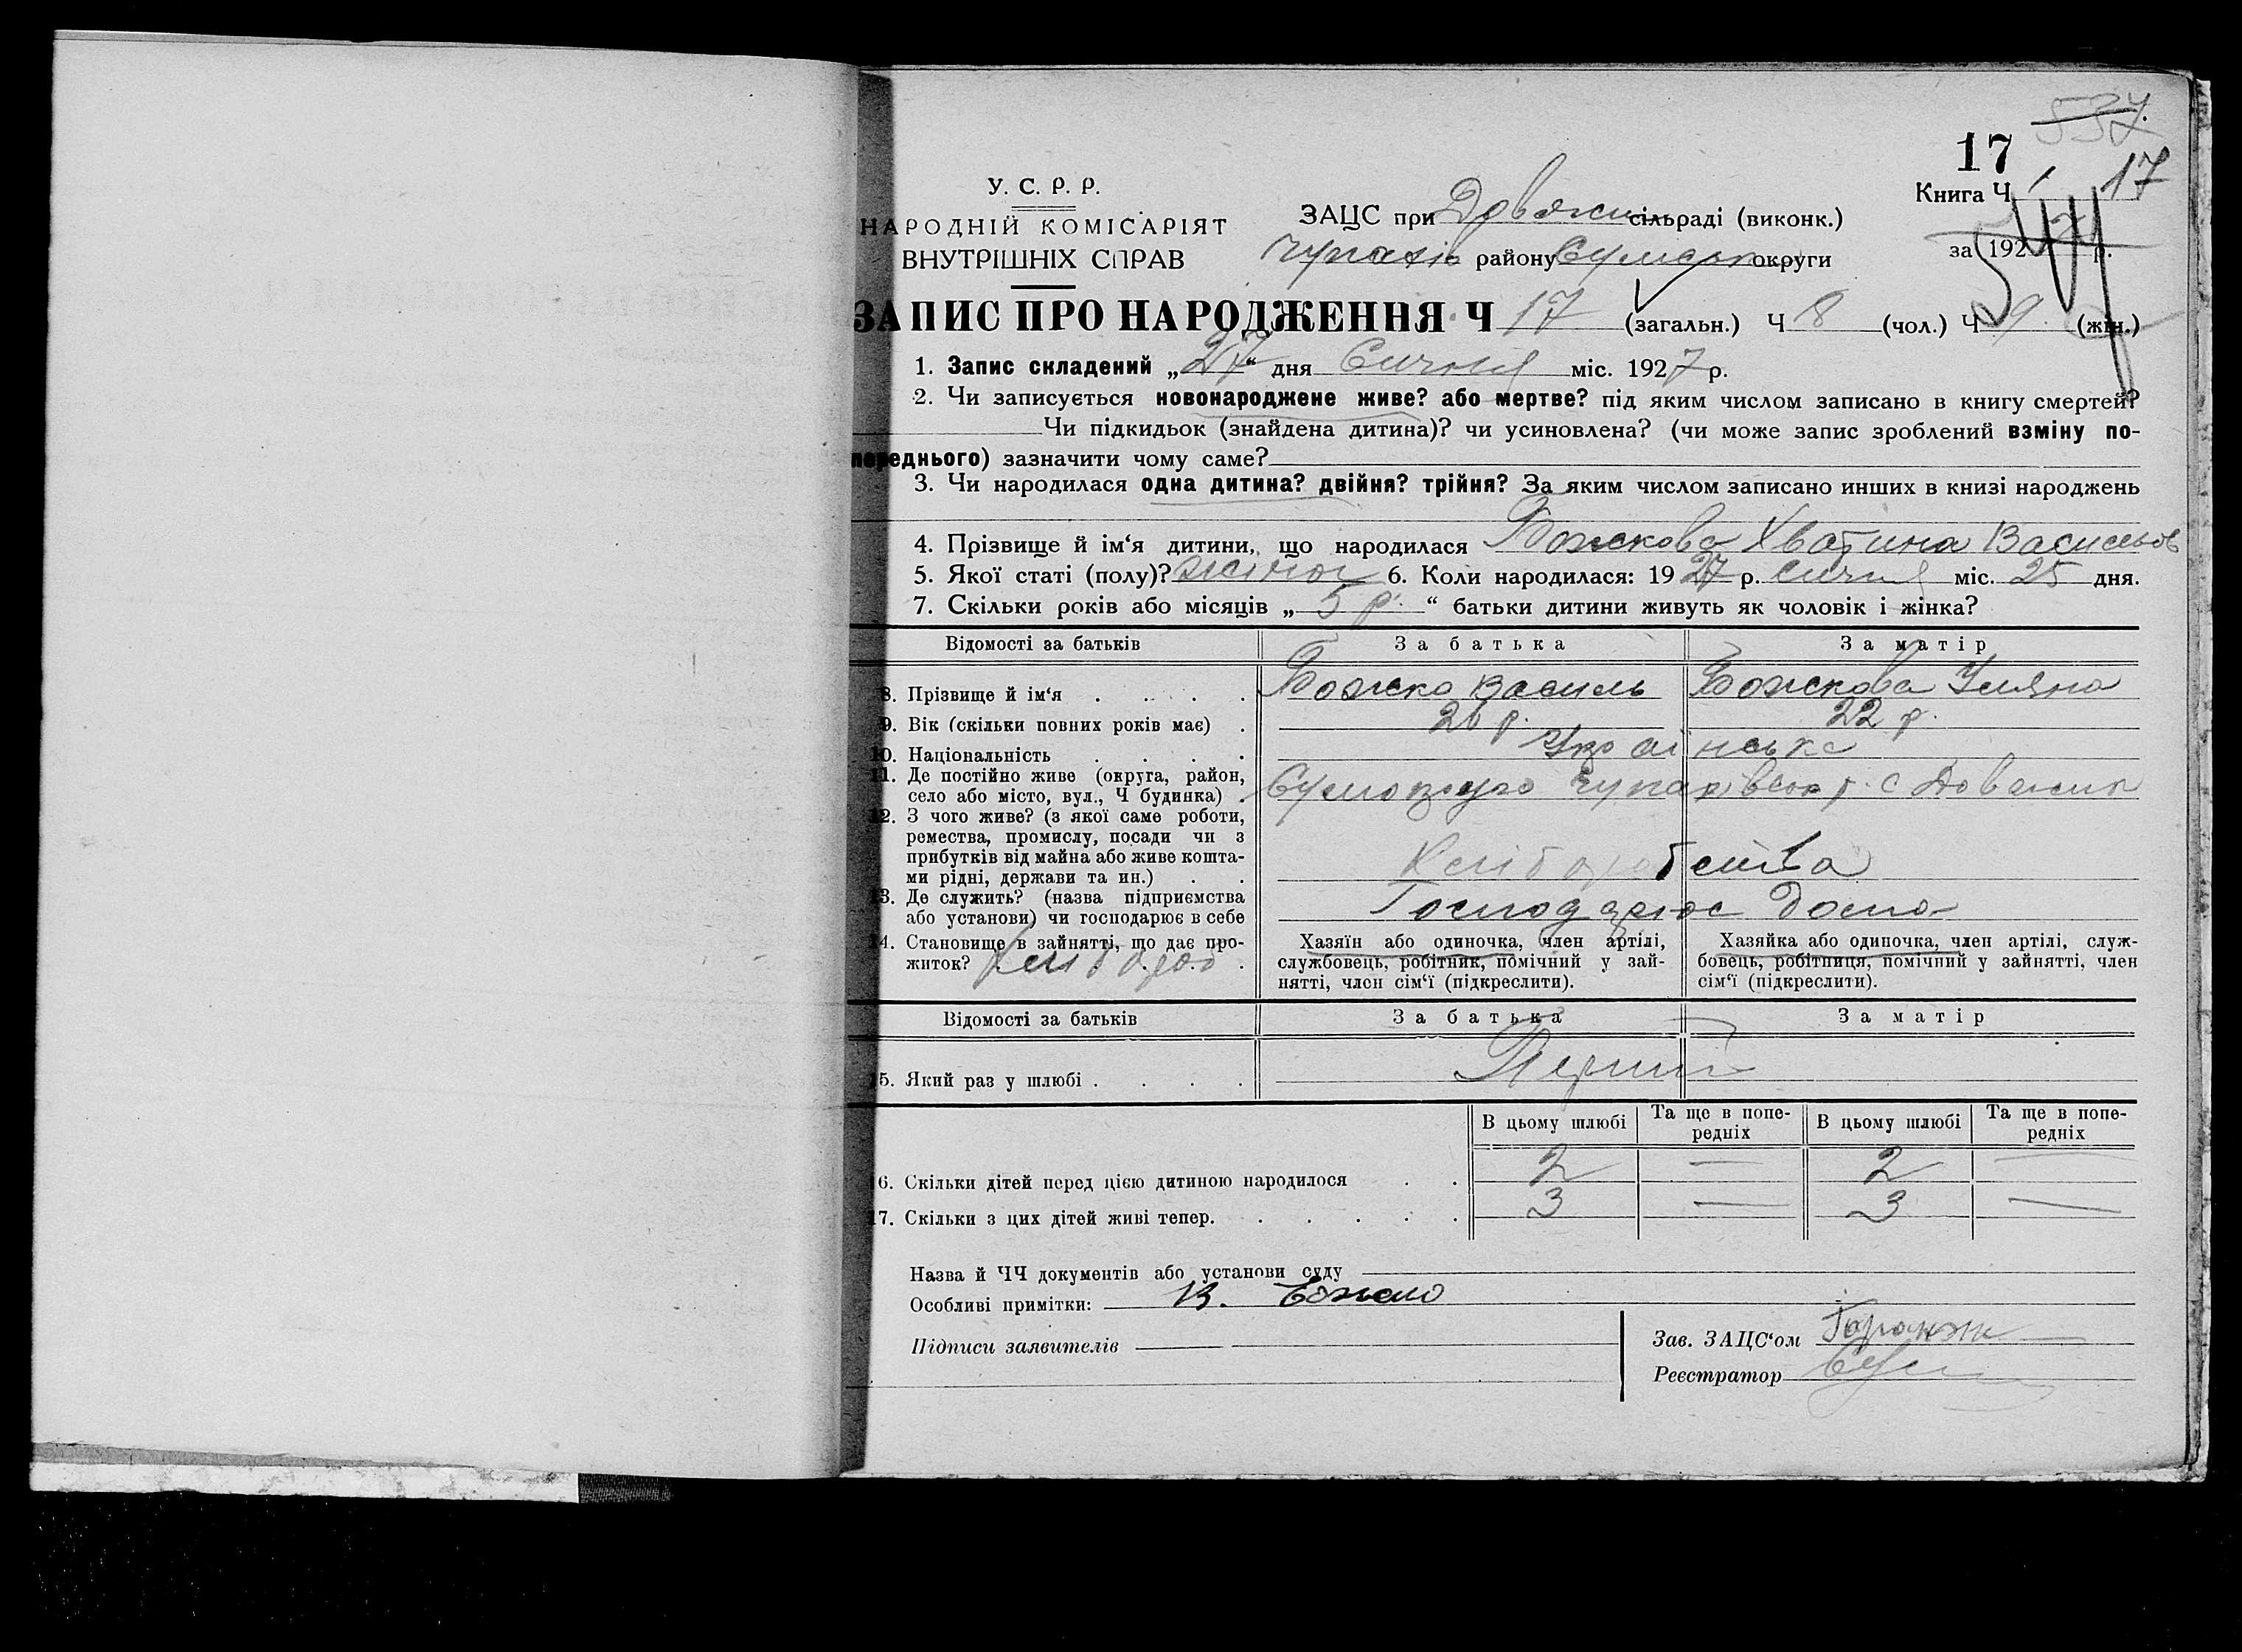 537.
17
17
У. С. Р. Р.
Книга Ч.
НАРОДНІЙ КОМІСАРІЯТ
ЗАЦС при Довжик сільраді (виконк.)
ВНУТРІШНІХ СПРАВ
Чупахів району Сумськ округи
за 1927 р.
ЗАПИС ПРО НАРОДЖЕННЯ Ч 17 (загальн.) Ч 8 (чол.) Ч 9 (жін.)
1. Запис складений „27“ дня Січня міс. 1927 р.
2. Чи записується новонароджене живе? або мертве? під яким числом записано в книгу смертей?
Чи підкидьок (знайдена дитина)? чи усиновлена? (чи може запис зроблений взміну по-
переднього) зазначити чому саме?
3. Чи народилася одна дитина? двійня? трійня? За яким числом записано инших в книзі народжень
4. Прізвище й ім‘я дитини, що народилася Божкова Хватина Васильов
5. Якої статі (полу)? жіноч 6. Коли народилася: 1927 р. січня міс. 25 дня.
7. Скільки років або місяців „ 5 р. “ батьки дитини живуть як чоловік і жінка?
Відомості за батьків За батька За матір
8. Прізвище й ім‘я Божко Василь Божкова Уляна
9. Вік (скільки повних років має) 26 р. 22 р.
10. Національність Українська
11. Де постійно живе (округа, район,
село або місто, вул., Ч будинка) с Довжик
12. З чого живе? (з якої саме роботи,
ремества, промислу, посади чи з
прибутків від майна або живе кошта-
ми рідні, держави та ин.) Хліборобства
13. Де служить? (назва підприємства
або установи) чи господарює в себе Господарює Дома
14. Становище в зайнятті, що дає про-
житок? Хлібороб
Хазяїн або одиночка, член артілі,
службовець, робітник, помічний у зай-
нятті, член сім‘ї (підкреслити).
Хазяйка або одиночка, член артілі, служ-
бовець, робітниця, помічний у зайнятті, член
сім‘ї (підкреслити).
Відомості за батьків За батька За матір
15. Який раз у шлюбі Перший
В цьому шлюбі Та ще в попе-редніх В цьому шлюбі Та ще в попе-редніх
16. Скільки дітей перед цією дитиною народилося 2 — 2 —
17. Скільки з цих дітей живі тепер. 3 — 3 —
Назва й ЧЧ документів або установи суду
Особливі примітки: В. Божко
Підписи заявителів
Зав. ЗАЦС‘ом Гаранжа
Реєстратор